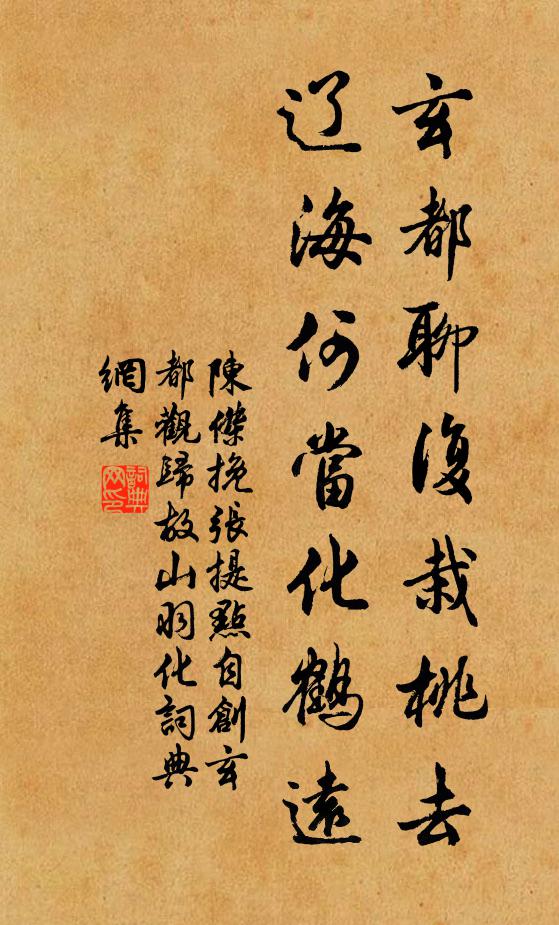 玄都聊復栽桃去
辽海何當化鶴遠
陳傑挽張提點自創玄
都觀歸故山羽化詞典
網集
詞典
网印